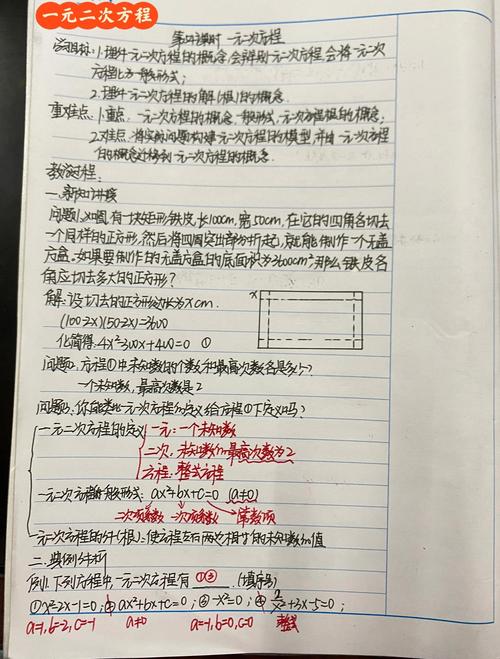 一元二次方程
第四课时 一元二次方程
学习目标:1.理解一元二次方程的概念,会辨别一元二次方程,会将一元二次
方程化为一般形式;
2.理解一元二次方程的解(根)的概念.
重难点:1.重点:一元二次方程的概念,一般形式,一元二次方程根的概念;
2.难点:将实际问题构建一元二次方程的模型,并由一元一次方程
的概念迁移到一元二次方程的概念.
教学过程:
一、新知讲授
问题1.如图,有一块矩形铁皮,长100cm,宽50cm,在它的四角各切去
一个同样的正方形,然后将四周突出部分折起,就能制作一个无盖
方盒.如果要制作的无盖方盒的底面积为3600cm²,那么铁皮各
角应切去多大的正方形?
解:设切去的正方形边长为xcm.
x
(100-2x)(50-2x)=3600
化简得:4x²-300x+1400=0 ①
问题2.方程①中未知数的个数和最高次数各是多少?
一个未知数,最高次数是2
问题3.你能类比一元一次方程的定义给方程①下定义吗?
一元二次方程的定义 一元:一个未知数
二次:未知数的最高次数为2
方程:整式方程
一元二次方程的一般形式:ax²+bx+c=0 (a≠0)
二次项系数 一次项系数 常数项
一元二次方程的解(根):使方程左右两边相等的未知数的值
二、典例分析
例1.下列方程中,一元二次方程有 ①③ .(填序号)
①x²-2x-1=0;②ax²+bx+c=0;③-x²=0;④ +3x-5=0;
a=1,b=-2,c=-1 a≠0 a=-1,b=0,c=0 整式